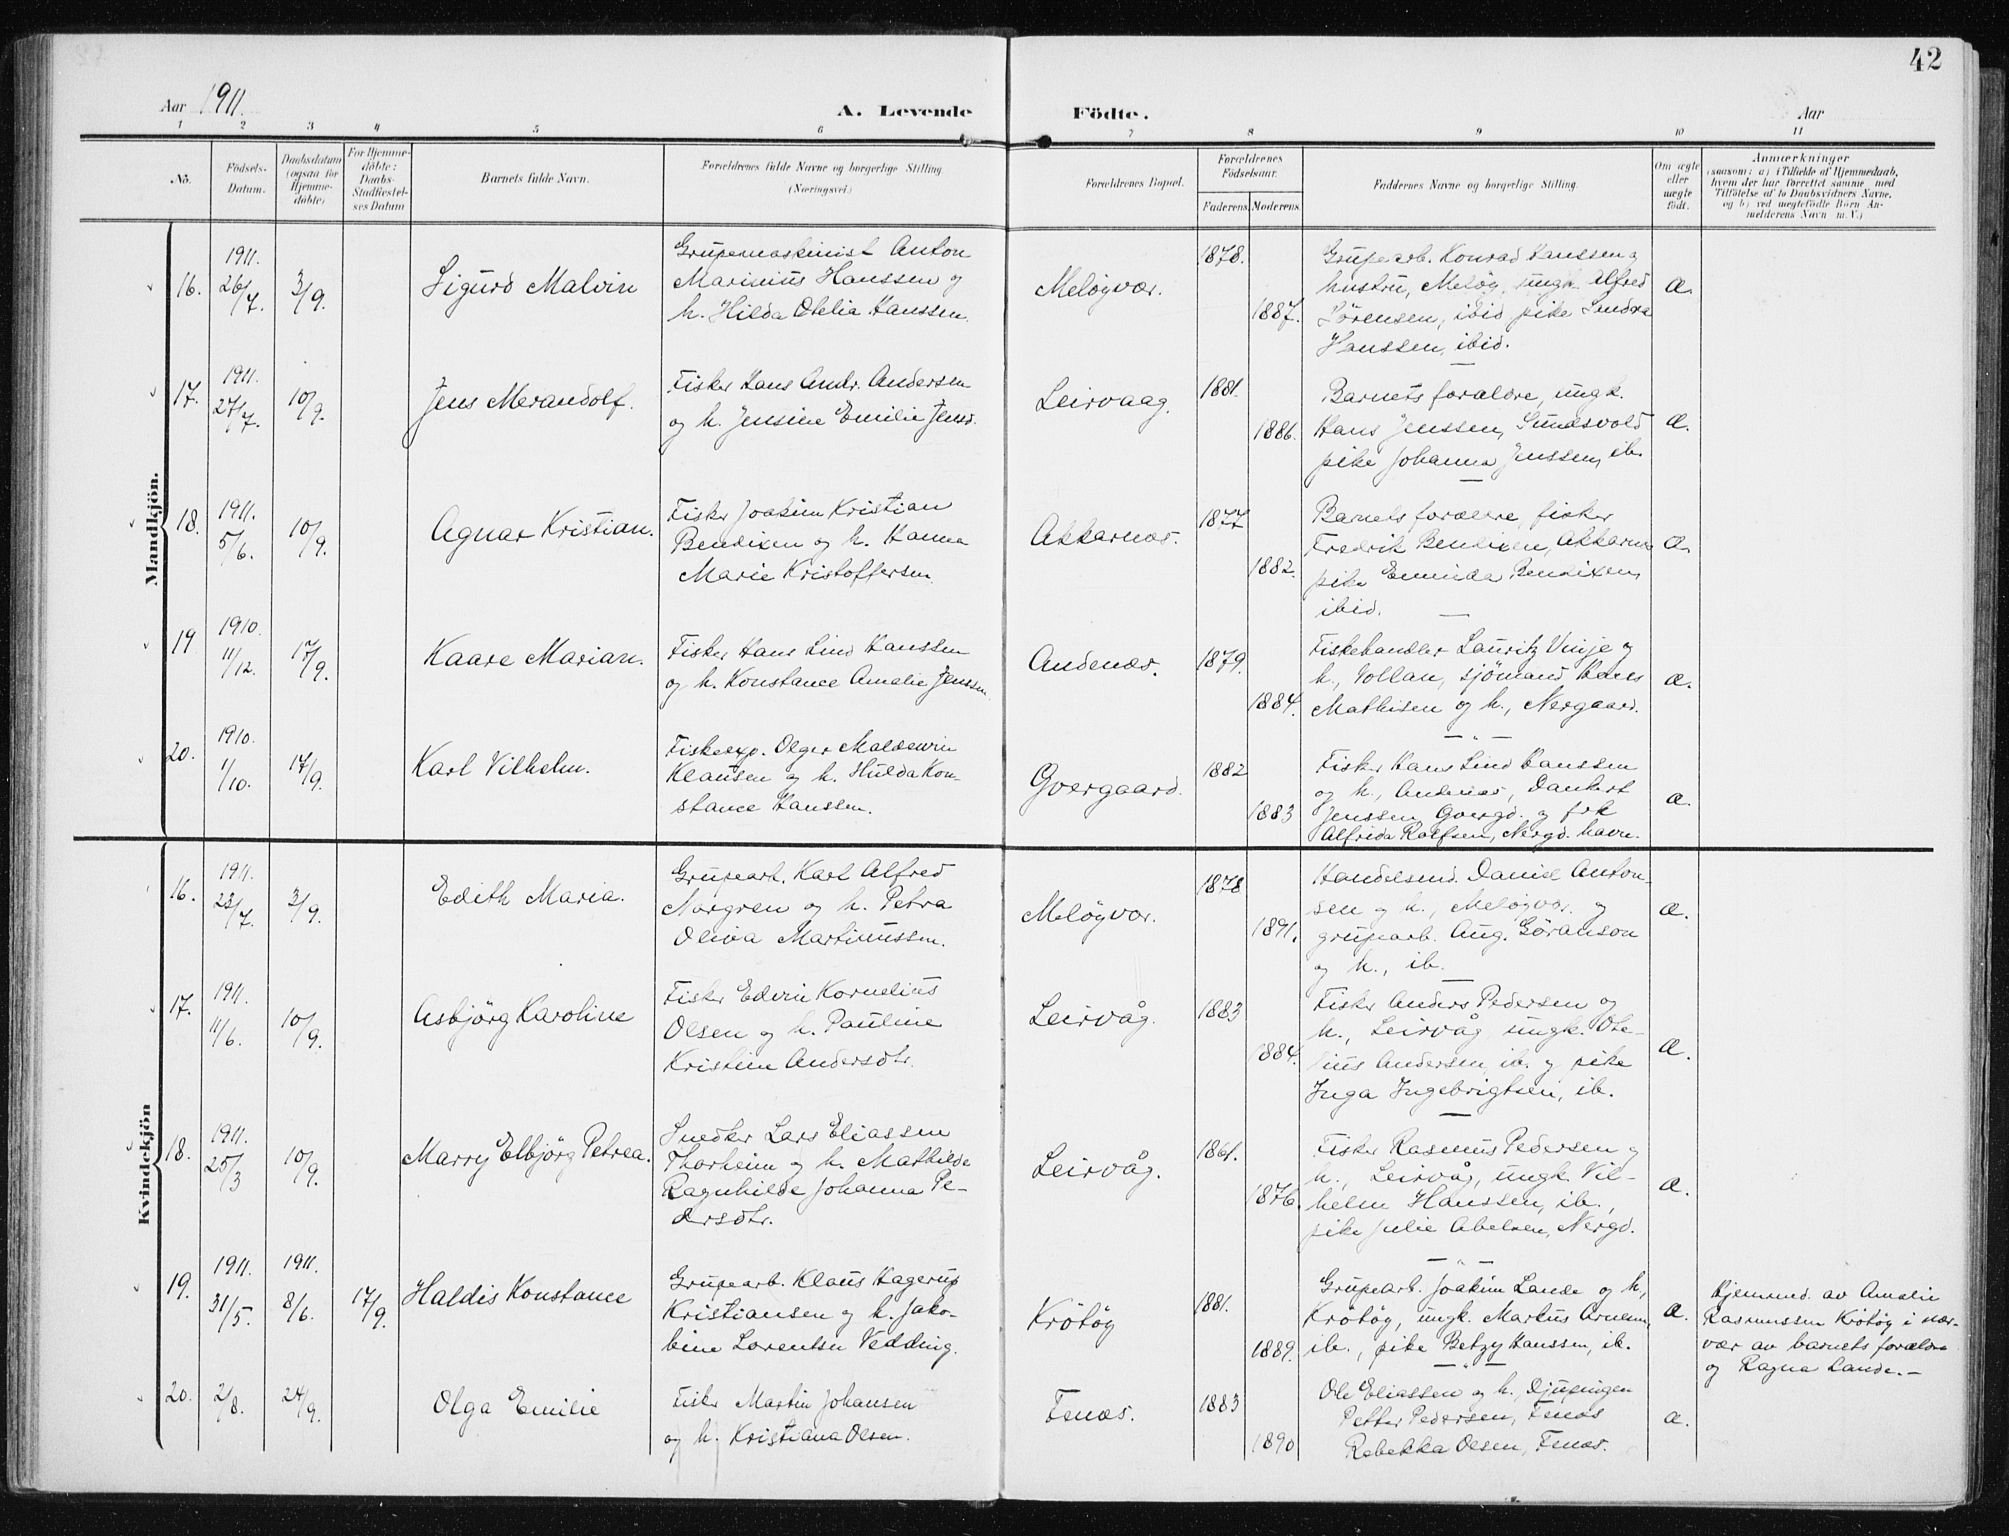 42
Aar 1911.
A. Levende Födte.
Aar
1 2 3 4 5 6 7 8 9 10 11
No.
Födsels-
Datum.
Daabsdatum
(ogsaa for
Hjemme-
döbte)
For Hjemme-
döbte:
Daabs-
Stadfæstel-
ses Datum
Barnets fulde Navn.
Forældrenes fulde Navne og borgerlige Stilling
(Næringsvei)
Forældrenes Bopæl.
Forældrenes
Födselsaar.
Faderens Moderens
Faddernes Navne og borgerlige Stilling.
Om ægte
eller
uægte
födt.
Anmærkninger
(saasom: a) i Tilfælde af Hjemmedaab,
hvem der har forrettet samme med
Tilföielse af to Daabsvidners Navne,
og b) ved uægtefödte Börn An-
melderens Navn m. V.)
Mandkjön.
16.
1911.
26/7.
3/9.
Sigurd Malvin
Grubemaskinist Anton
Marinius Hanssen og
h. Hilda Otelia Hanssen
Meløyvær.
1878.
1887.
Grubearb. Konrad Hanssen og
hustru, Meløy, ungk. Alfred
Sörensen, ibid pike
Hanssen, ibid.
æ.
17.
1911.
27/7.
10/9.
Jens Merandolf.
Fisker Hans Andr. Andersen
og h. Jensine Emilie Jensd.
Leirvaag.
1881.
1886.
Barnets forældre, ungk.
Hans Jenssen, Sundsvold
pike Johanna Jenssen, ib.
æ.
18.
1911.
5/6.
10/9.
Agnar Kristian.
Fisker Joakim Kristian
Bendixen og h. Hanna
Marie Kristoffersen.
Akkarnæs.
1877
1882.
Barnets forældre, fisker
Fredrik Bendixen, Akkarnæs
pike Bendixen,
ibid.
æ.
19
1910.
11/12.
17/9.
Kaare Marian.
Fisker Hans Lind Hanssen
og h. Konstance Amalie Jenssen
Andenæs.
1879.
1884.
Fiskehandler Lauritz Vinje og
h., Vollan, sjömand
Mathisen og h., Nergaard.
æ.
20.
1910.
1/10.
17/9.
Karl Vilhelm.
Fiskeexp. Olger Maldewin
Klausen og h. Hulda Kon-
stance Hanssen.
Gvergaard.
1882
1883
Fisker Hans Lind Hanssen
og h., Andenæs, Dankert
Jenssen, Gvergd. og frk
Alfrida Rolfsen, Nergd. havn.
æ.
Kvindekjön
16.
1911.
23/7.
3/9.
Edith Maria.
Grubearb. Karl Alfred
Norgren og h. Petra
Oliva Martinussen.
Meløyvær.
1878
1891.
Handelsmd. Daniel Anton-
sen og h., Meløyvær. og
grubearb. Aug. Göranson
og h., ib.
æ.
17.
1911.
11/6.
10/9.
Asbjörg Karoline
Fisker Edvin Kornelius
Olsen og h. Pauline
Kristine Andersdtr.
Leirvåg.
1883
1884.
Fisker Anders Pedersen og
h., Leirvåg, ungk. Ote-
lius Andersen, ib. og pike
Inga Ingebrigtsen, ib.
æ.
18.
1911.
25/3
10/9.
Marry Elbjörg Petrea.
Snedker Lars Eliassen
Thorheim og h. Mathilde
Ragnhilde Johanna Pe-
dersdtr.
Leirvåg.
1861.
1876.
Fisker Rasmus Pedersen og
h., Leirvåg, ungk. Vil-
helm Hanssen, ib.,
pike Julie Abelsen, Nergd.
æ.
19.
1911.
31/5.
1911.
8/6.
17/9.
Haldis Konstance
Grubearb. Klaus Hagerup
Kristiansen og h. Jako-
bine Lorentse Vedding.
Krötöy
1881.
1889.
Grubearb. Joakim Lande og h,
Krötöy, ungk. Markus Arnesen,
ib., pike Betzy Hanssen, ib.
æ.
Hjemmed. av Amalie
Rasmussen Krötöy i nær-
vær av barnets forældre
og Ragna Lande.-
20.
2/8.
24/9.
Olga Emilie
Fisker Martin Johansen
og h. Kristiana Olsen.
Fenæs.
1883
1890
Ole Eliassen og h., Djupingen
Petter Pedersen, Fenæs
Rebekka Olsen, Fenæs.
æ.